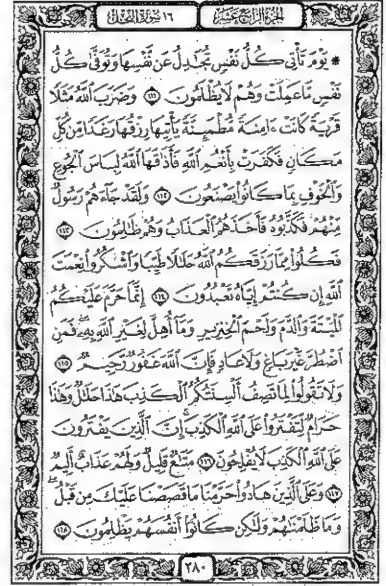 الجزء الرابع عشر ١٦ سورة النحل
* يَوْمَ تَأْتِي كُلُّ نَفْسٍ تُجَٰدِلُ عَن نَّفْسِهَا وَتُوَفَّىٰ كُلُّ
نَفْسٍ مَّا عَمِلَتْ وَهُمْ لَا يُظْلَمُونَ ١١١ وَضَرَبَ ٱللَّهُ مَثَلًا
قَرْيَةً كَانَتْ ءَامِنَةً مُّطْمَئِنَّةً يَأْتِيهَا رِزْقُهَا رَغَدًا مِّن كُلِّ
مَكَانٍ فَكَفَرَتْ بِأَنْعُمِ ٱللَّهِ فَأَذَٰقَهَا ٱللَّهُ لِبَاسَ ٱلْجُوعِ
وَٱلْخَوْفِ بِمَا كَانُوا۟ يَصْنَعُونَ ١١٢ وَلَقَدْ جَآءَهُمْ رَسُولٌ
مِّنْهُمْ فَكَذَّبُوهُ فَأَخَذَهُمُ ٱلْعَذَابُ وَهُمْ ظَٰلِمُونَ ١١٣
فَكُلُوا۟ مِمَّا رَزَقَكُمُ ٱللَّهُ حَلَٰلًا طَيِّبًا وَٱشْكُرُوا۟ نِعْمَتَ
ٱللَّهِ إِن كُنتُمْ إِيَّاهُ تَعْبُدُونَ ١١٤ إِنَّمَا حَرَّمَ عَلَيْكُمُ
ٱلْمَيْتَةَ وَٱلدَّمَ وَلَحْمَ ٱلْخِنزِيرِ وَمَآ أُهِلَّ لِغَيْرِ ٱللَّهِ بِهِۦ ۖ فَمَنِ
ٱضْطُرَّ غَيْرَ بَاغٍ وَلَا عَادٍ فَإِنَّ ٱللَّهَ غَفُورٌ رَّحِيمٌ ١١٥
وَلَا تَقُولُوا۟ لِمَا تَصِفُ أَلْسِنَتُكُمُ ٱلْكَذِبَ هَٰذَا حَلَٰلٌ وَهَٰذَا
حَرَامٌ لِّتَفْتَرُوا۟ عَلَى ٱللَّهِ ٱلْكَذِبَ ۚ إِنَّ ٱلَّذِينَ يَفْتَرُونَ
عَلَى ٱللَّهِ ٱلْكَذِبَ لَا يُفْلِحُونَ ١١٦ مَتَٰعٌ قَلِيلٌ وَلَهُمْ عَذَابٌ أَلِيمٌ
١١٧ وَعَلَى ٱلَّذِينَ هَادُوا۟ حَرَّمْنَا مَا قَصَصْنَا عَلَيْكَ مِن قَبْلُ ۖ
وَمَا ظَلَمْنَٰهُمْ وَلَٰكِن كَانُوٓا۟ أَنفُسَهُمْ يَظْلِمُونَ ١١٨
٢٨٠